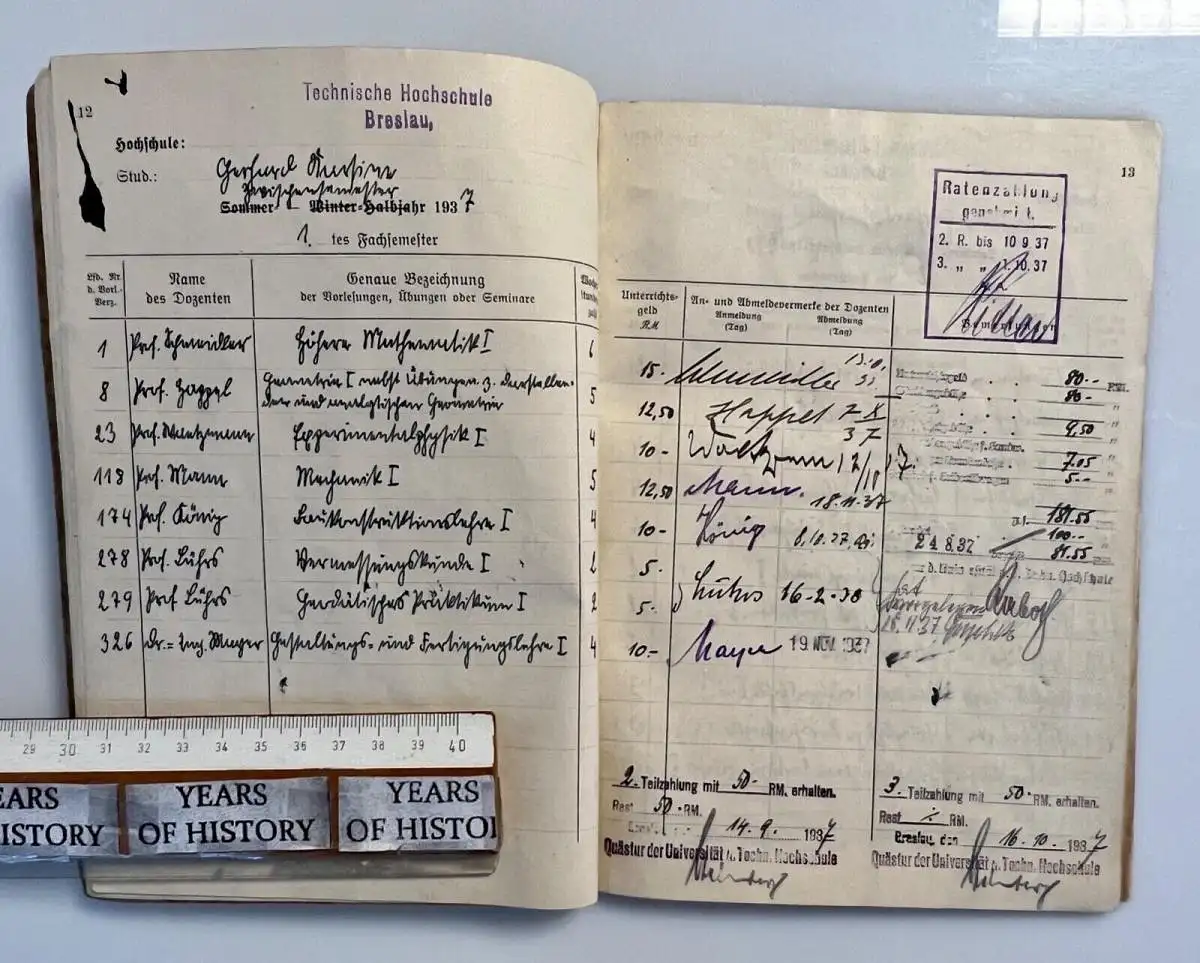 12
Technische Hochschule
Breslau,
Hochschule:
Stud.: Gerhard
Zwischensemester
Sommer- Winter-Halbjahr 1937
1. tes Fachsemester
Lfd. Nr. d. Vorl.-Verz.
Name des Dozenten
Genaue Bezeichnung der Vorlesungen, Übungen oder Seminare
1 Prof. Schmeidler Höhere Mathematik I 6
8 Prof. Happel Geometrie I nebst Übungen z. darstellen-
der und analytischen Geometrie 5
23 Prof. Waetzmann Experimentalphysik I 4
118 Prof. Mann Mechanik I 5
174 Prof. König Baukonstruktionslehre I 4
278 Prof. Lührs Vermessungskunde I 2
279 Prof. Lührs Geodätisches Praktikum I 2
326 Dr.-Ing. Mayer Gestaltungs- und Fertigungslehre I 4
29 30 31 32 33 34 35 36 37 38 39 40
EARS YEARS YEARS
HISTORY OF HISTORY OF HISTO
13
Ratenzahlung
genehmigt.
2. R. bis 10 9 37
3. „ „ 1.10.37
Unterrichts-geld RM
An- und Abmeldevermerke der Dozenten
Anmeldung (Tag)
Abmeldung (Tag)
15.- Schmeidler 80.--
80.-
12,50 Happel 7 X 37 9,50
10.- 7.05
5.--
12,50 Mann. 18.11.37
181.55
100.--
10.- König 8.10.37 24 8.37 81.55
5.
5. Lührs 16-2-38
18.11.37
10.- Mayer 19 NOV. 1937
2. Teilzahlung mit 50.- RM. erhalten.
Rest 50.- RM.
14.9. 1937
Quästur der Universität u. Techn. Hochschule
3. Teilzahlung mit 50.- RM. erhalten.
Rest RM.
Breslau, den 16.10. 1937
Quästur der Universität u. Techn. Hochschule